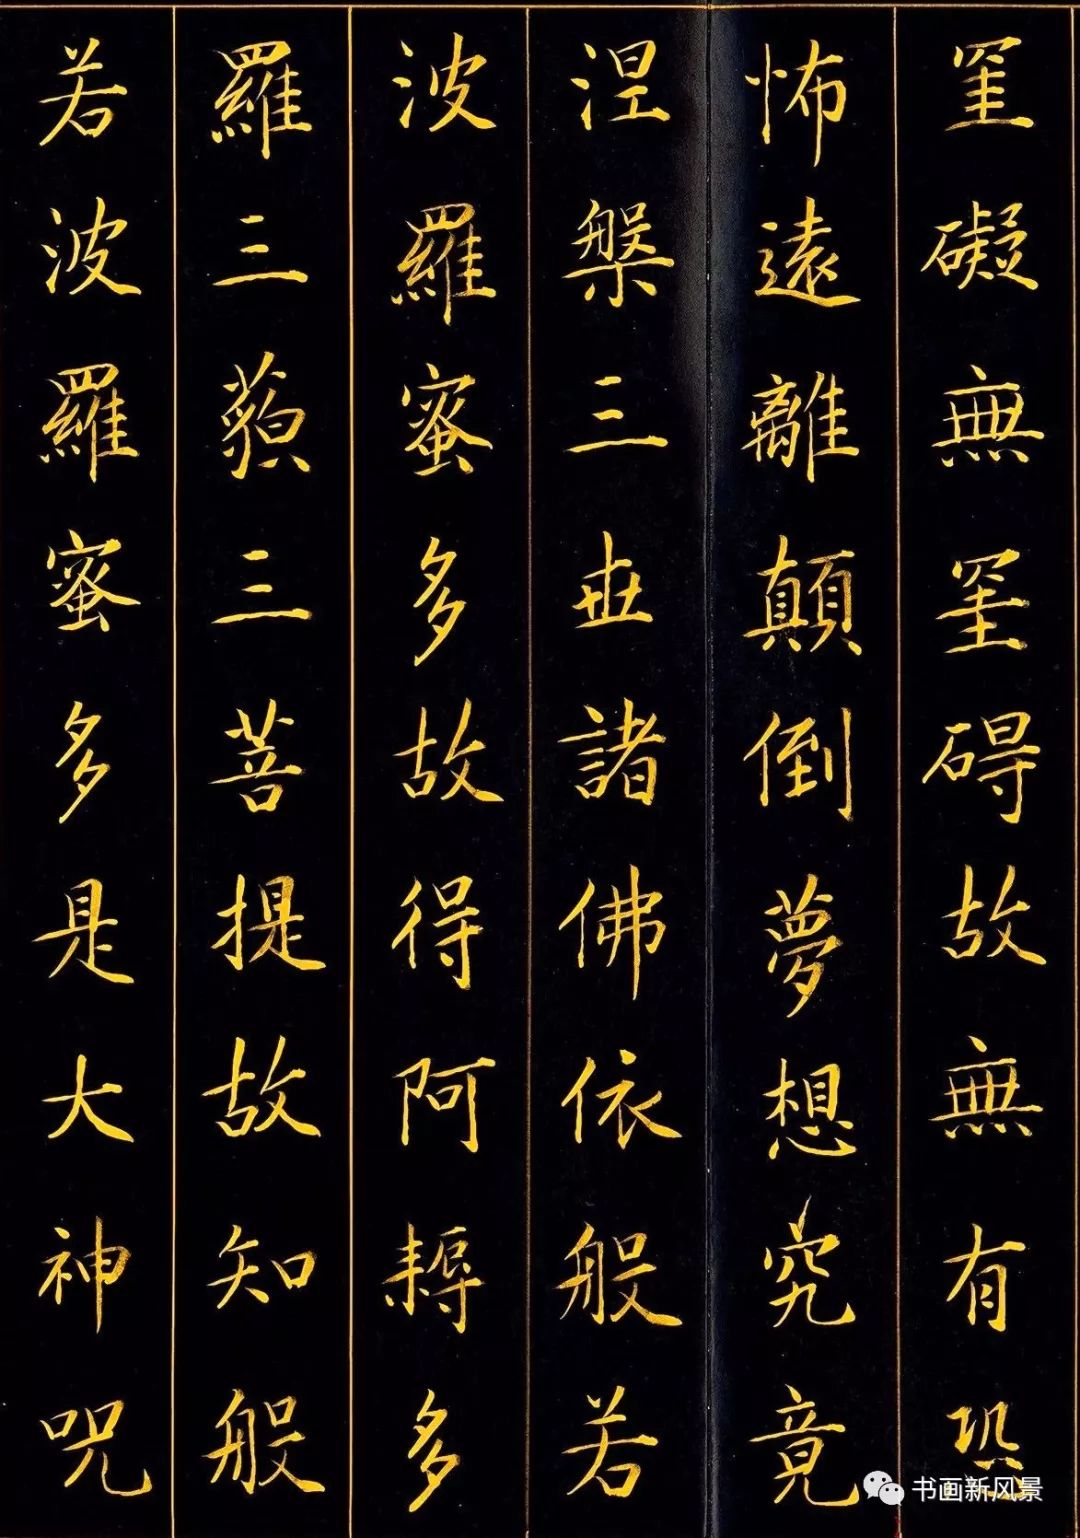 罣礙無罣碍故無有恐
怖遠離顛倒夢想究竟
涅槃三世諸佛依般若
波羅蜜多故得阿耨多
羅三藐三菩提故知般
若波羅蜜多是大神咒
书画新风景